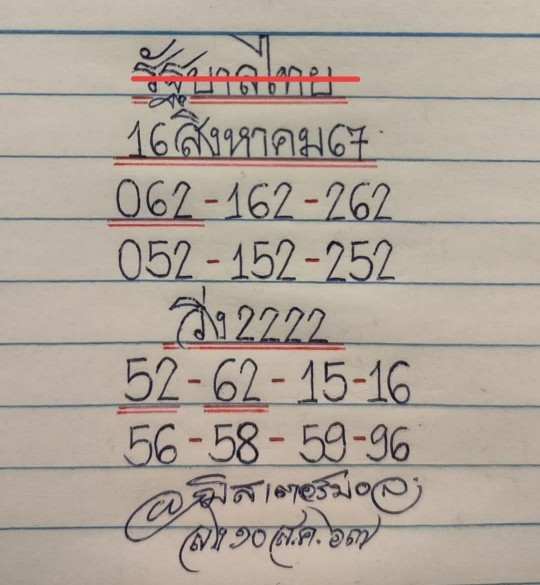 รัฐบาลไทย
16 สิงหาคม 67
062 - 162 - 262
052 - 152 - 252
วิ่ง 2222
52 - 62 - 15 - 16
56 - 58 - 59 - 96
ส.ค. ๖๗